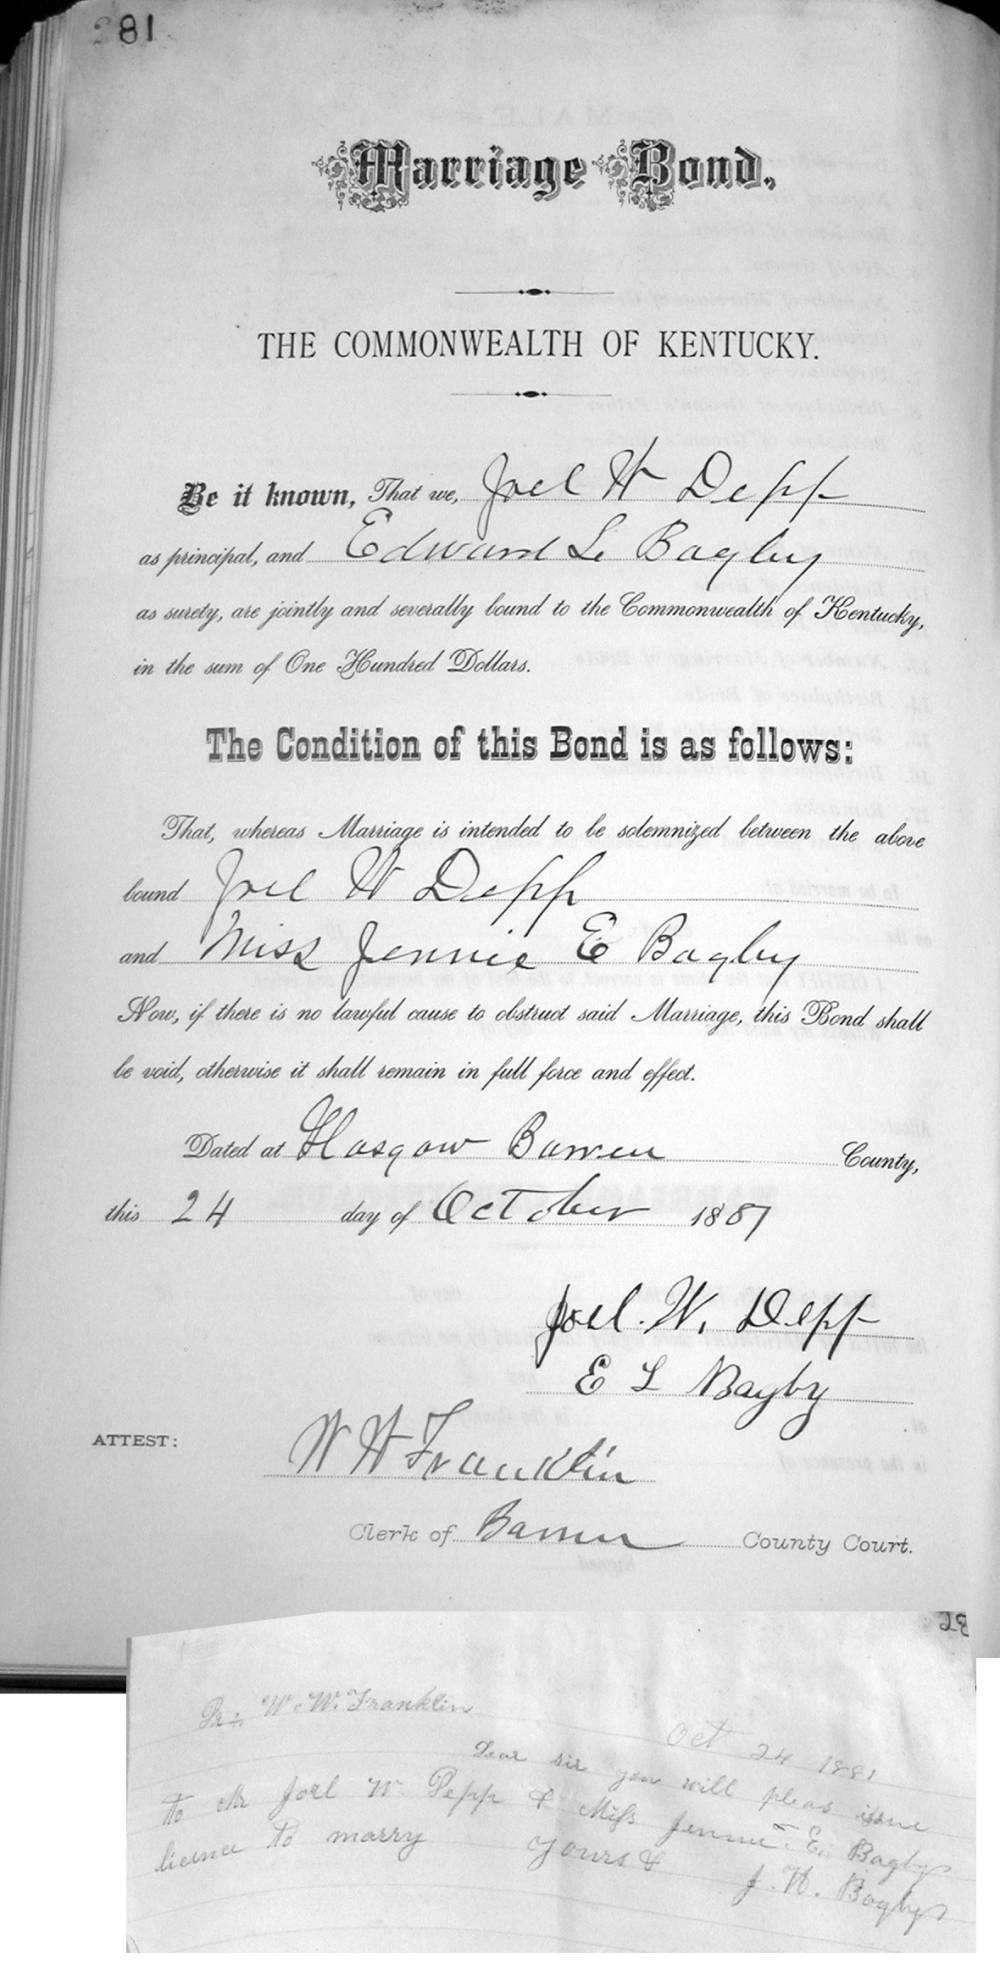 281
Marriage Bond.
THE COMMONWEALTH OF KENTUCKY.
Be it known, That we, Joel W Depp
as principal, and Edward L Bagby
as surety, are jointly and severally bound to the Commonwealth of Kentucky,
in the sum of One Hundred Dollars.
The Condition of this Bond is as follows:
That, whereas Marriage is intended to be solemnized between the above
bound Joel W Depp
and Miss Jennie E Bagby
Now, if there is no lawful cause to obstruct said Marriage, this Bond shall
be void, otherwise it shall remain in full force and effect.
Dated at Glasgow Barren County,
this 24 day of October 1881
Joel. W. Depp
E L Bagby
ATTEST: W W Franklin
Clerk of Barren County Court.
28
W. W. Franklin
Oct 24 1881
Dear sir you will pleas issue
to Mr Joel W. Depp & Miss Jennie E. Bagby
licence to marry yours &
J. W. Bagby